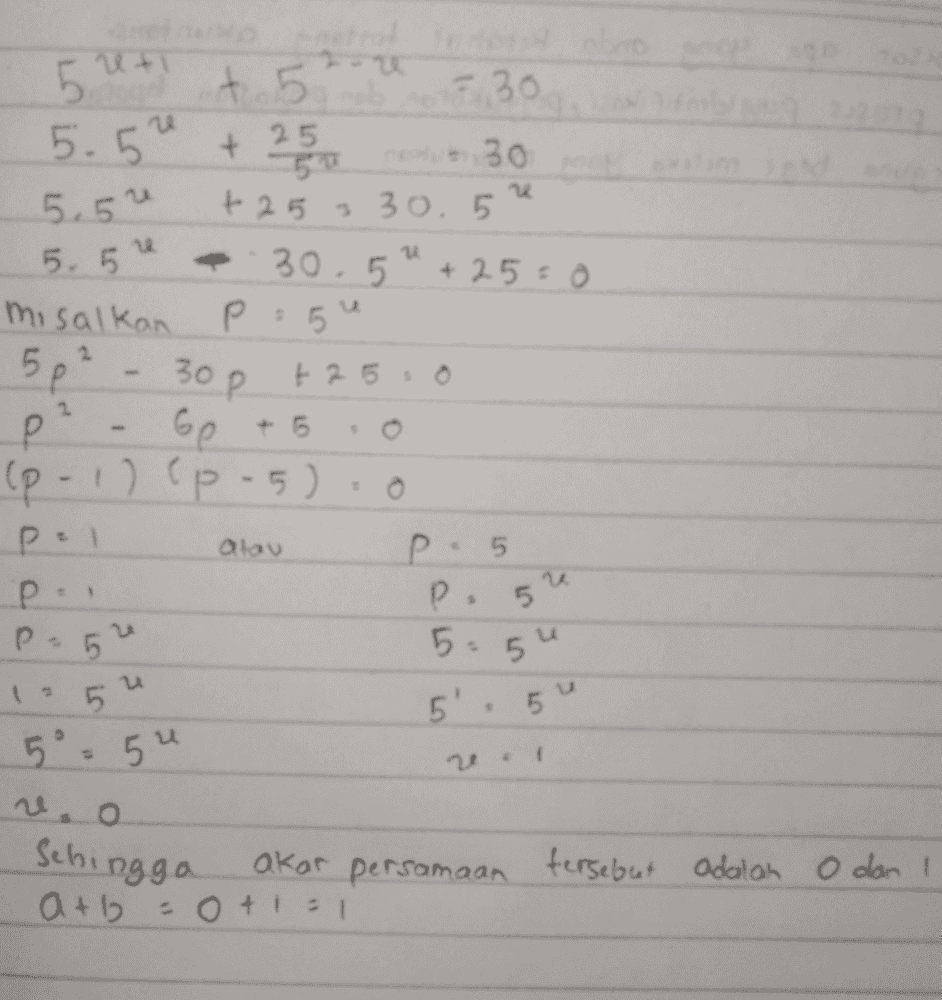 5^(x+1) + 5^(2-x) = 30
5. 5^x + 25/5^x = 30
5. 5^x + 25 = 30. 5^x
5. 5^x - 30. 5^x + 25 = 0
Misalkan P = 5^x
5p² - 30p + 25 = 0
p² - 6p + 5 = 0
(p - 1) (p - 5) = 0
P = 1 atau P = 5
P = 1 P = 5^x
P = 5^x 5 = 5^x
1 = 5^x 5¹ = 5^x
5⁰ = 5^x x = 1
x = 0
Sehingga akar persamaan tersebut adalah 0 dan 1
a + b = 0 + 1 = 1